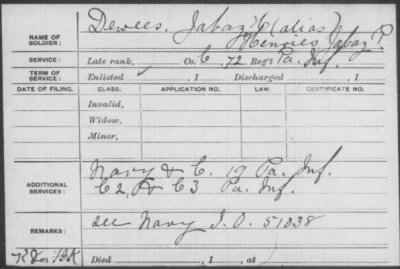 Dewees, Jabaz C (alias)
NAME OF SOLDIER: Henries Jabaz P.
SERVICE: Late rank, Co. C, 72 Reg't Pa. Inf.
TERM OF SERVICE: Enlisted , 1 Discharged , 1
DATE OF FILING. CLASS. APPLICATION NO. LAW. CERTIFICATE NO.
Invalid,
Widow,
Minor,
Navy & C. 19 Pa. Inf.
ADDITIONAL SERVICES: C 2, & C 3 Pa. Inf.
REMARKS: see Navy I.O. 51038
Died , 1 , at